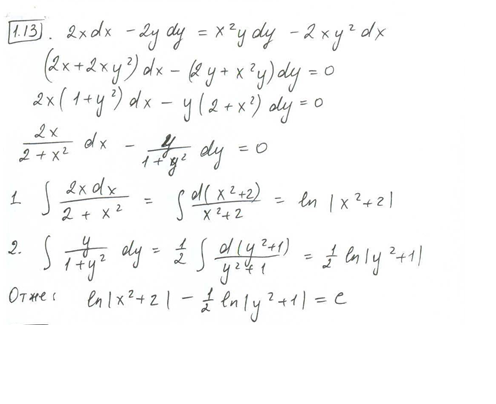 1.13. 2xdx - 2ydy = x²ydy - 2xy²dx
(2x+2xy²)dx - (2y+x²y)dy = 0
2x(1+y²)dx - y(2+x²)dy = 0
2x/(2+x²) dx - y/(1+y²) dy = 0
1. ∫ 2xdx/(2+x²) = ∫ d(x²+2)/(x²+2) = ln|x²+2|
2. ∫ y/(1+y²) dy = 1/2 ∫ d(y²+1)/(y²+1) = 1/2 ln|y²+1|
Отже: ln|x²+2| - 1/2 ln|y²+1| = C